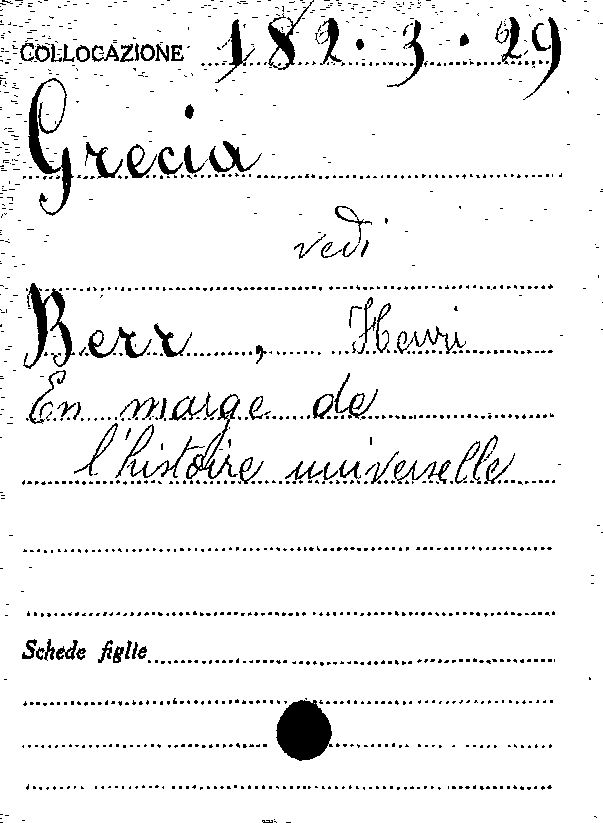 COLLOCAZIONE 182.3.29
Grecia
vedi
Berr, Henri
En marge de
l'histoire universelle
Schede figlie